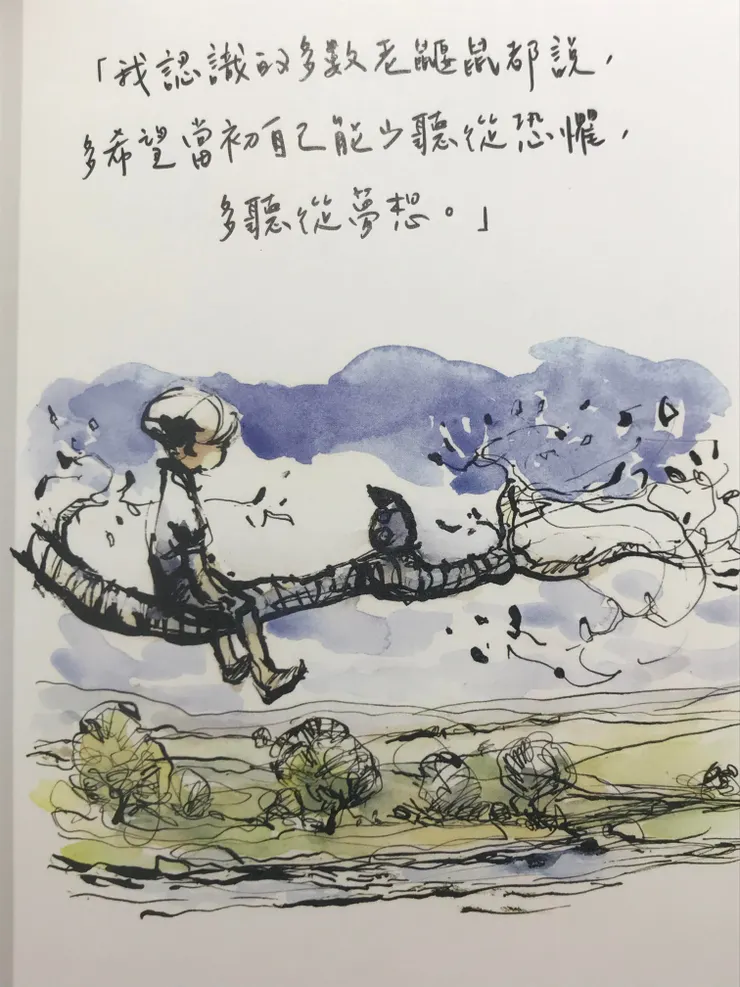 「我認識的多數老鼴鼠都說，
多希望當初自己能少聽從恐懼，
多聽從夢想。」